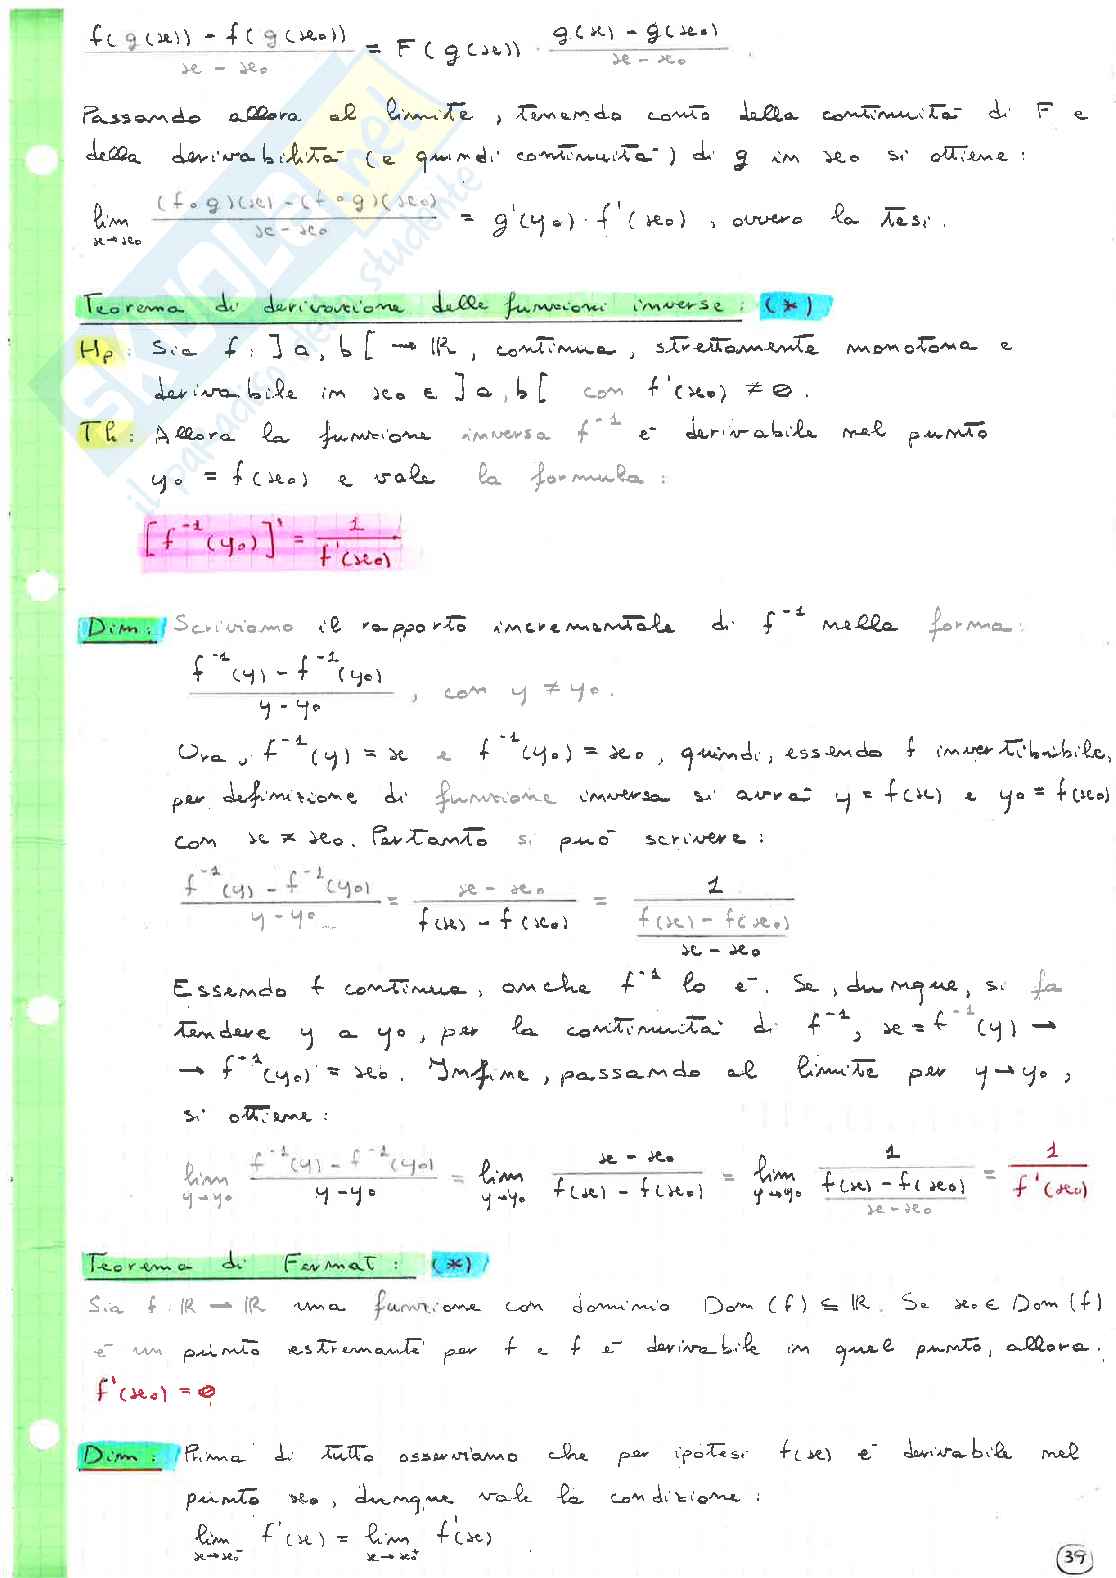 f(g(x)) - f(g(x₀)) / x - x₀ = F(g(x)) · g(x) - g(x₀) / x - x₀
Passando allora al limite, tenendo conto della continuità di F e
della derivabilità (e quindi continuità) di g in x₀ si ottiene:
lim x→x₀ (f∘g)(x) - (f∘g)(x₀) / x - x₀ = g'(y₀) · f'(x₀), ovvero la tesi.
Teorema di derivazione delle funzioni inverse: (*)
Hp: Sia f: ]a, b[ → ℝ, continua, strettamente monotona e
derivabile in x₀ ∈ ]a, b[ con f'(x₀) ≠ 0.
Th: Allora la funzione inversa f⁻¹ è derivabile nel punto
y₀ = f(x₀) e vale la formula:
[f⁻¹(y₀)]' = 1 / f'(x₀)
Dim: Scriviamo il rapporto incrementale di f⁻¹ nella forma:
f⁻¹(y) - f⁻¹(y₀) / y - y₀, con y ≠ y₀.
Ora, f⁻¹(y) = x e f⁻¹(y₀) = x₀, quindi, essendo f invertibibile,
per definizione di funzione inversa si avrà y = f(x) e y₀ = f(x₀)
con x ≠ x₀. Pertanto si può scrivere:
f⁻¹(y) - f⁻¹(y₀) / y - y₀ = x - x₀ / f(x) - f(x₀) = 1 / f(x) - f(x₀) / x - x₀
Essendo f continua, anche f⁻¹ lo è. Se, dunque, si fa
tendere y a y₀, per la continuità di f⁻¹, x = f⁻¹(y) →
→ f⁻¹(y₀) = x₀. Infine, passando al limite per y→y₀,
si ottiene:
lim y→y₀ f⁻¹(y) - f⁻¹(y₀) / y - y₀ = lim y→y₀ x - x₀ / f(x) - f(x₀) = lim y→y₀ 1 / f(x) - f(x₀) / x - x₀ = 1 / f'(x₀)
Teorema di Fermat: (*)
Sia f: ℝ → ℝ una funzione con dominio Dom(f) ⊆ ℝ. Se x₀ ∈ Dom(f)
è un punto estremante per f e f è derivabile in quel punto, allora:
f'(x₀) = 0
Dim: Prima di tutto osserviamo che per ipotesi f(x) è derivabile nel
punto x₀, dunque vale la condizione:
lim x→x₀⁻ f'(x) = lim x→x₀⁺ f'(x)
39
skuola.net
il paradiso dello studente